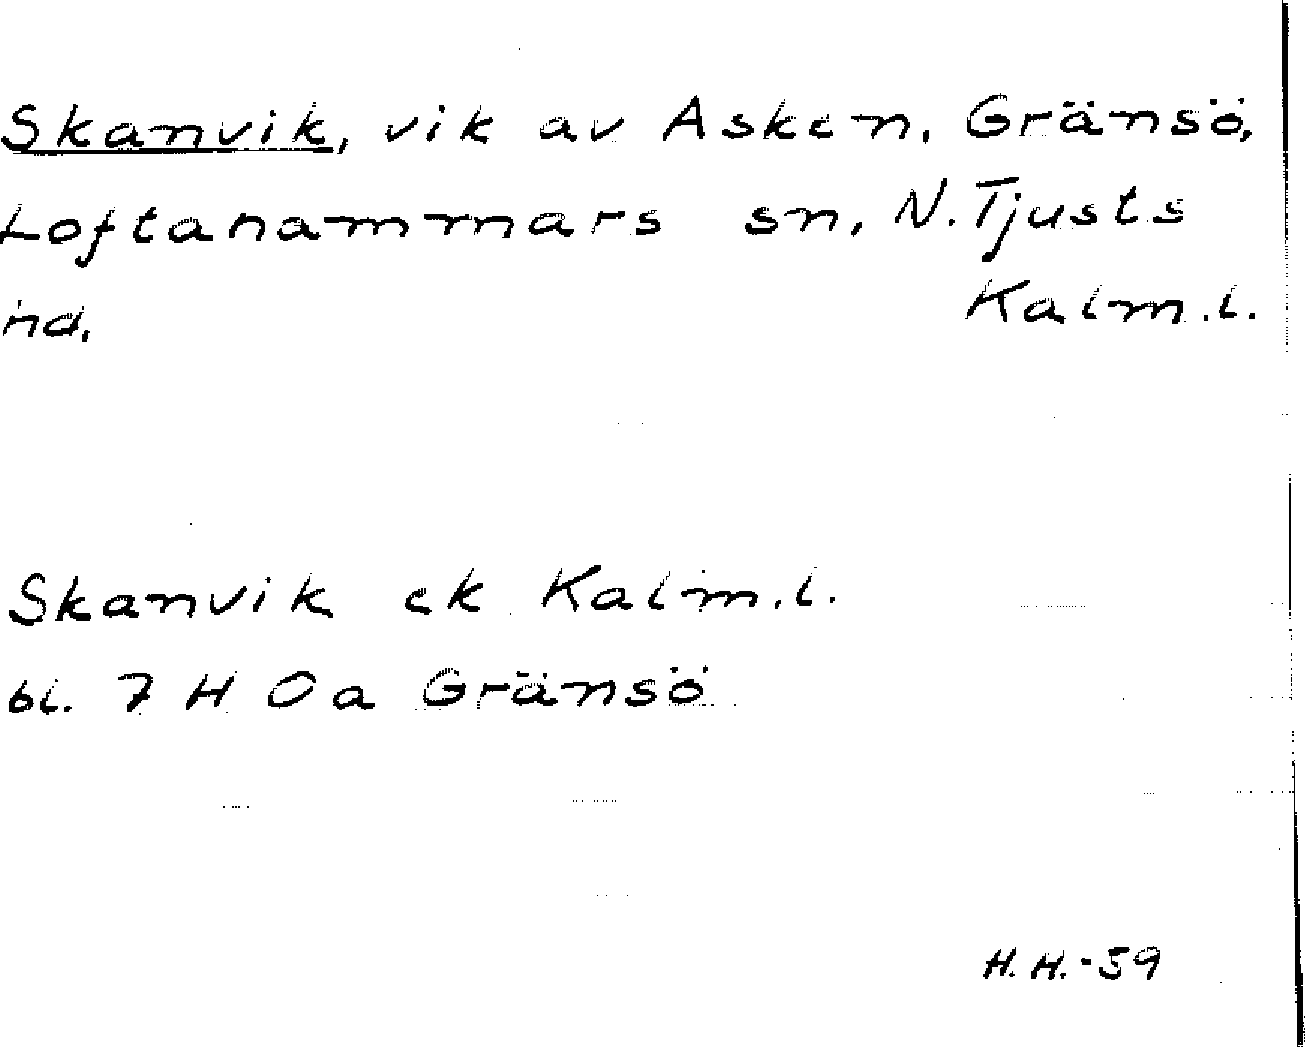 Skanvik, vik av Asken, Gränsö,
Loftahammars sn, N. Tjusts
hd, Kalm.l.
Skanvik ek Kalm.l.
bl. 7 H 0a Gränsö
H.H.-59